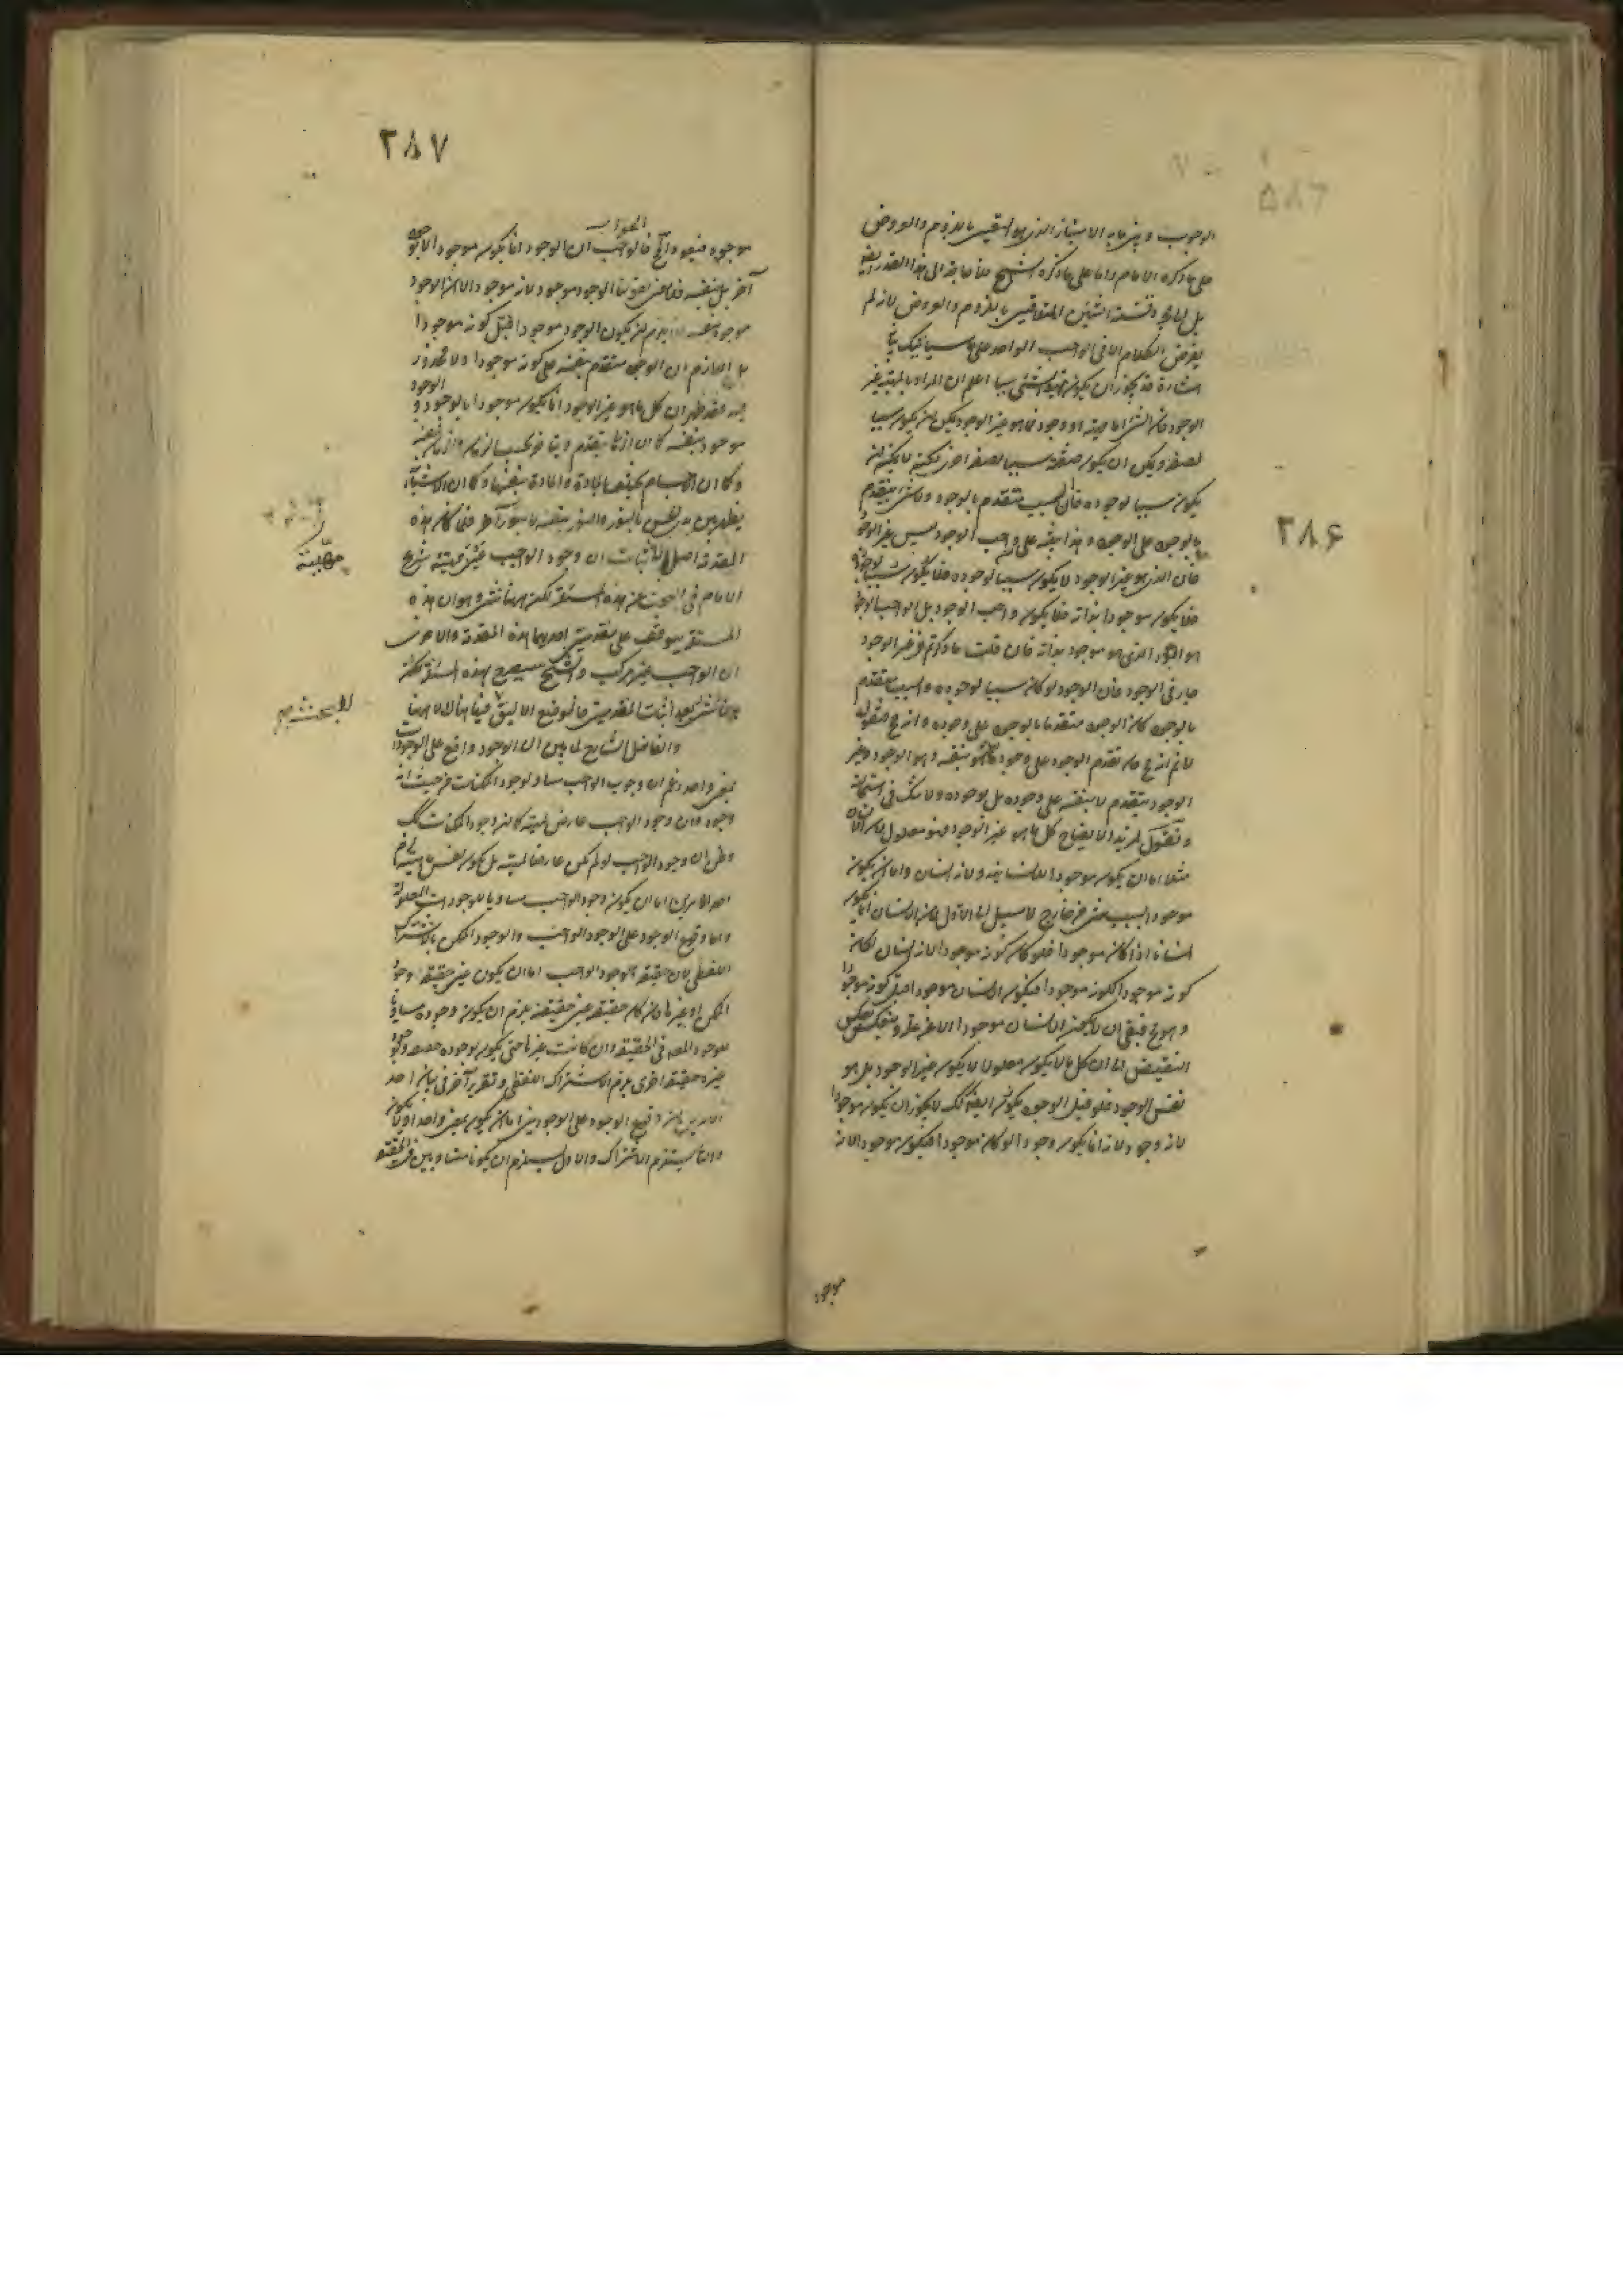 ۳۸۶
الوجوب وبين ما به الامتياز الذي هو التعين باللزوم والعروض
على ما ذكره الامام واما على ما ذكره الشيخ فلا حاجة الى هذا القدر
بل الى قسمة الشيئين المتعلقين باللزوم والعروض لانه لم
يفرض الكلام الا في الواجب الواحد على ما سيأتيك
اشارة قد يجوز ان يكون ماهية الشيء سببا اعلم ان المراد بالماهية غير
الوجود فان الشيء اما ماهية او وجود فما هو غير الوجود يمكن ان يكون سببا
لصفة ويمكن ان يكون صفته سببا لصفة اخرى لكنه لا يمكن ان
يكون سببا لوجوده فان السبب متقدم بالوجود ولا شيء يتقدم
بالوجود على الوجود وهذا ينبه على ان واجب الوجود ليس غير الوجود
فان الذي هو غير الوجود لا يكون سببا لوجوده فلا يكون
فلا يكون موجودا بذاته فلا يكون واجب الوجود بل الواجب الوجود
هو الوجود الذي هو موجود بذاته فان قلت ما ذكرتم في غير الوجود
جار في الوجود فان الوجود لو كان سببا لوجوده والسبب متقدم
بالوجود كان الوجود متقدما بالوجود على وجوده وانه محال فنقول
لا نم انه مح فان تقدم الوجود على وجوده انما هو بنفسه وهو الوجود وغير
الوجود يتقدم لا بنفسه على وجوده بل بوجوده ولا شك في استحالته
ونقول لمزيد الايضاح كل ما هو غير الوجود فهو معلول لان الانسان
مثلا اما ان يكون موجودا للانسانية ولانه انسان واما ان يكون
موجودا بسبب شيء من خارج لا سبيل الى الاول لان الانسان انما يكون
انسانا اذا كان موجودا فلو كان كونه موجودا لانه انسان لكان
كونه موجودا لكونه موجودا فيكون الانسان موجودا قبل كونه موجودا
وهو مح فبقي ان لا يكون الانسان موجودا الا عن علة وينعكس بعكس
النقيض الى ان كل ما لا يكون معلولا لا يكون غير الوجود بل هو
نفس الوجود فلو قيل الوجود يكون ايضا كك لا يجوز ان يكون موجودا
لانه وجود لانه انما يكون وجودا لو كان موجودا فيكون موجودا لانه
موجود
۳۸۷
الجواب
موجود فيعود المح فالجواب ان الوجود انما يكون موجودا لا بوجود
آخر بل بنفسه فلا معنى لقولنا الوجود موجود لانه موجود الا ان الوجود
موجود بنفسه فلا يلزم ان يكون الوجود موجودا قبل كونه موجودا
بل اللازم ان الوجود متقدم بنفسه على كونه موجودا ولا محذور
فيه فقد ظهر ان كل ما هو غير الوجود انما يكون موجودا بالوجود والوجود
موجود بنفسه كما ان الزماني يتقدم ويتأخر بحسب الزمان والزمان بنفسه
وكما ان الاجسام يختلف بالمادة والمادة بنفسها وكما ان الاشياء
يظهر بين يدي الحس بالنور والنور بنفسه لا بنور آخر فلما كان هذه
المقدمة اصلا لاثبات ان وجود الواجب عين ماهيته شرع
الامام في البحث عن هذه المسئلة لكن ههنا شيء وهو ان هذه
المسئلة يتوقف على مقدمتين احديهما هذه المقدمة والاخرى
ان الواجب غير مركب والشيخ سيصرح بهذه المسئلة
بعد اثبات المقدمتين فالموضع الاليق هناك لا ههنا
والفاضل الشارح لما بين ان الوجود واقع على الموجودات
بمعنى واحد زعم ان وجود الواجب مساو لوجود الممكنات من حيث انه
وجود وان وجود الواجب عارض لماهيته كما ان وجود الممكنات كك
وظن ان وجود الواجب لو لم يكن عارضا لماهيته بل يكون نفس ماهيته لزم
احد الامرين اما ان يكون وجود الواجب مساويا للوجودات المعلولة
واما وقوع الوجود على الوجود الواجب والوجود الممكن بالاشتراك
اللفظي لان حقيقة الوجود الواجب اما ان يكون عين حقيقة وجود
الممكن او غيرها فان كان حقيقته عين حقيقته يلزم ان يكون وجوده مساويا
لوجود الممكن في الحقيقة وان كانت غيرها حتى يكون لوجوده حقيقة ولوجود
غيره حقيقة اخرى يلزم الاشتراك اللفظي وتقرير آخر في بيان احد
الامرين ان وقوع الوجود على الوجودين اما ان يكون بمعنى واحد او لا يكون
والثاني يستلزم الاشتراك والاول يستلزم ان يكونا متساويين في الحقيقة
مهيته